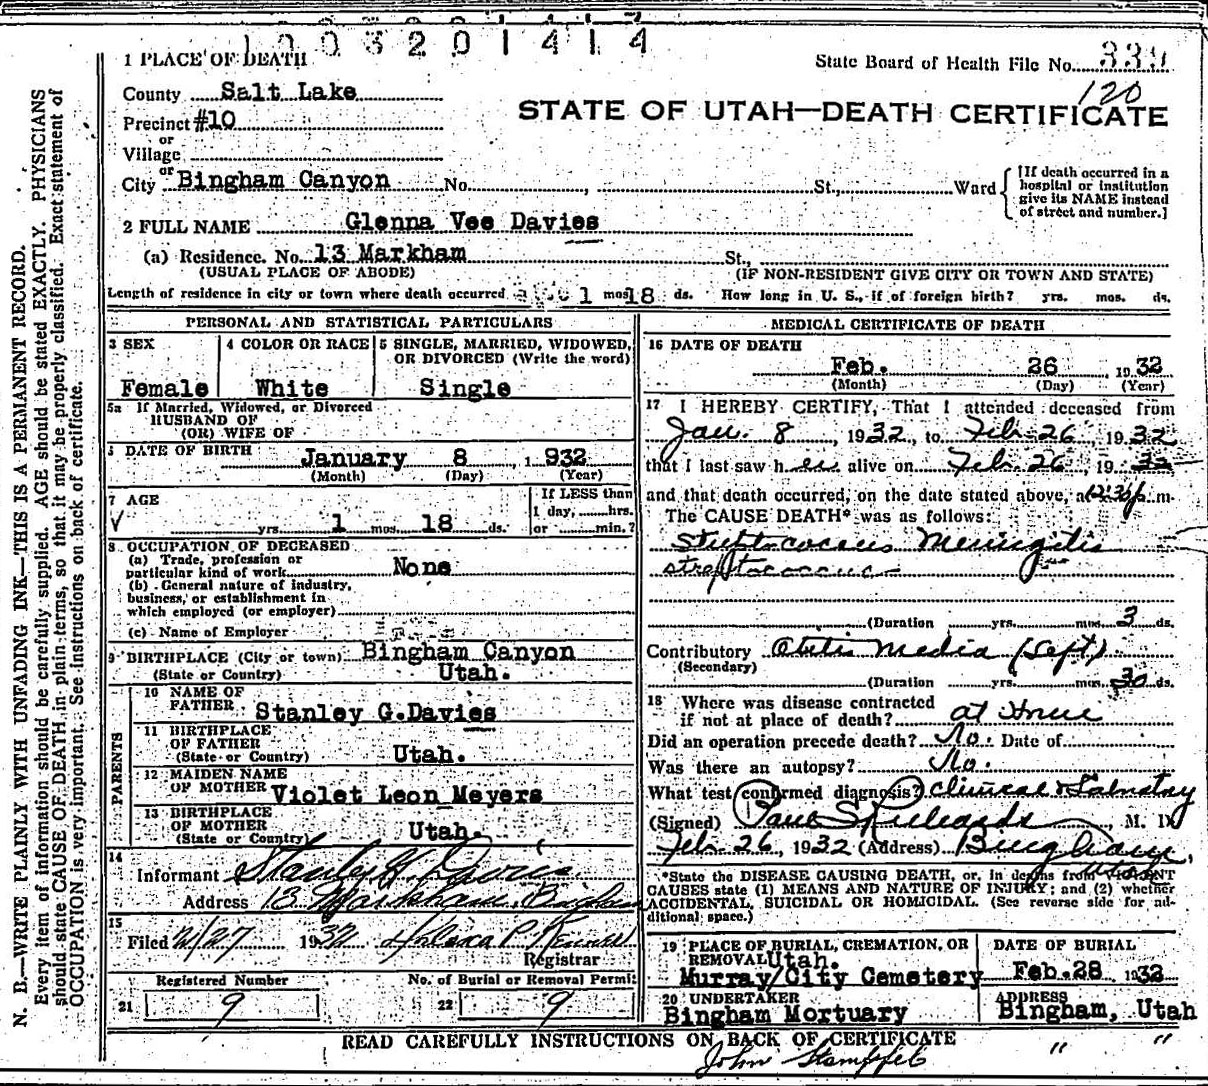 1003201414
1 PLACE OF DEATH
State Board of Health File No. 339
120
County Salt Lake
STATE OF UTAH—DEATH CERTIFICATE
Precinct #10
or
Village
or
City Bingham Canyon No. , St., Ward
[If death occurred in a hospital or institution give its NAME instead of street and number.]
2 FULL NAME Glenna Vee Davies
(a) Residence. No. 13 Markham St.,
(USUAL PLACE OF ABODE) (IF NON-RESIDENT GIVE CITY OR TOWN AND STATE)
Length of residence in city or town where death occurred 1 mos 18 ds. How long in U. S., if of foreign birth? yrs. mos. ds.
PERSONAL AND STATISTICAL PARTICULARS
3 SEX
Female
4 COLOR OR RACE
White
5 SINGLE, MARRIED, WIDOWED,
OR DIVORCED (Write the word)
Single
5a If Married, Widowed, or Divorced
HUSBAND OF
(OR) WIFE OF
6 DATE OF BIRTH January 8, 1932
(Month) (Day) (Year)
7 AGE
yrs. 1 mos. 18 ds.
If LESS than
1 day, hrs.
or min.?
8 OCCUPATION OF DECEASED
(a) Trade, profession or
particular kind of work None
(b) General nature of industry,
business, or establishment in
which employed (or employer)
(c) Name of Employer
9 BIRTHPLACE (City or town) Bingham Canyon
(State or Country) Utah.
PARENTS
10 NAME OF
FATHER Stanley G.Davies
11 BIRTHPLACE
OF FATHER
(State or Country) Utah.
12 MAIDEN NAME
OF MOTHER Violet Leon Meyers
13 BIRTHPLACE
OF MOTHER
(State or Country) Utah.
14
Informant Stanley G. Davies
Address 13 Markham, Bingham
15
Filed 2/27 1932
Registrar
Registered Number No. of Burial or Removal Permit
21 9 22 9
MEDICAL CERTIFICATE OF DEATH
16 DATE OF DEATH
Feb. 26 1932
(Month) (Day) (Year)
17 I HEREBY CERTIFY, That I attended deceased from
Jan. 8, 1932, to Feb. 26, 1932
that I last saw her alive on Feb. 26, 1932
and that death occurred, on the date stated above, at 12:30 p m.
The CAUSE DEATH* was as follows:
Streptococcus Meningitis
streptococcus
(Duration yrs. mos. 3 ds.
Contributory Otitis Media (Left)
(Secondary)
(Duration yrs. mos. 30 ds.
18 Where was disease contracted
if not at place of death? at Home
Did an operation precede death? No. Date of
Was there an autopsy? No.
What test confirmed diagnosis? Clinical & Labratory
(Signed) Paul S. Richards, M. D.
Feb. 26, 1932 (Address) Bingham,
Utah
*State the DISEASE CAUSING DEATH, or, in deaths from VIOLENT
CAUSES state (1) MEANS AND NATURE OF INJURY; and (2) whether
ACCIDENTAL, SUICIDAL OR HOMICIDAL. (See reverse side for ad-
ditional space.)
19 PLACE OF BURIAL, CREMATION, OR
REMOVAL Utah.
Murray/City Cemetery
DATE OF BURIAL
Feb.28 1932
20 UNDERTAKER
Bingham Mortuary
ADDRESS
Bingham, Utah
READ CAREFULLY INSTRUCTIONS ON BACK OF CERTIFICATE
John " "
N. B.—WRITE PLAINLY WITH UNFADING INK—THIS IS A PERMANENT RECORD.
Every item of information should be carefully supplied. AGE should be stated EXACTLY. PHYSICIANS
should state CAUSE OF DEATH in plain terms, so that it may be properly classified. Exact statement of
OCCUPATION is very important. See instructions on back of certificate.